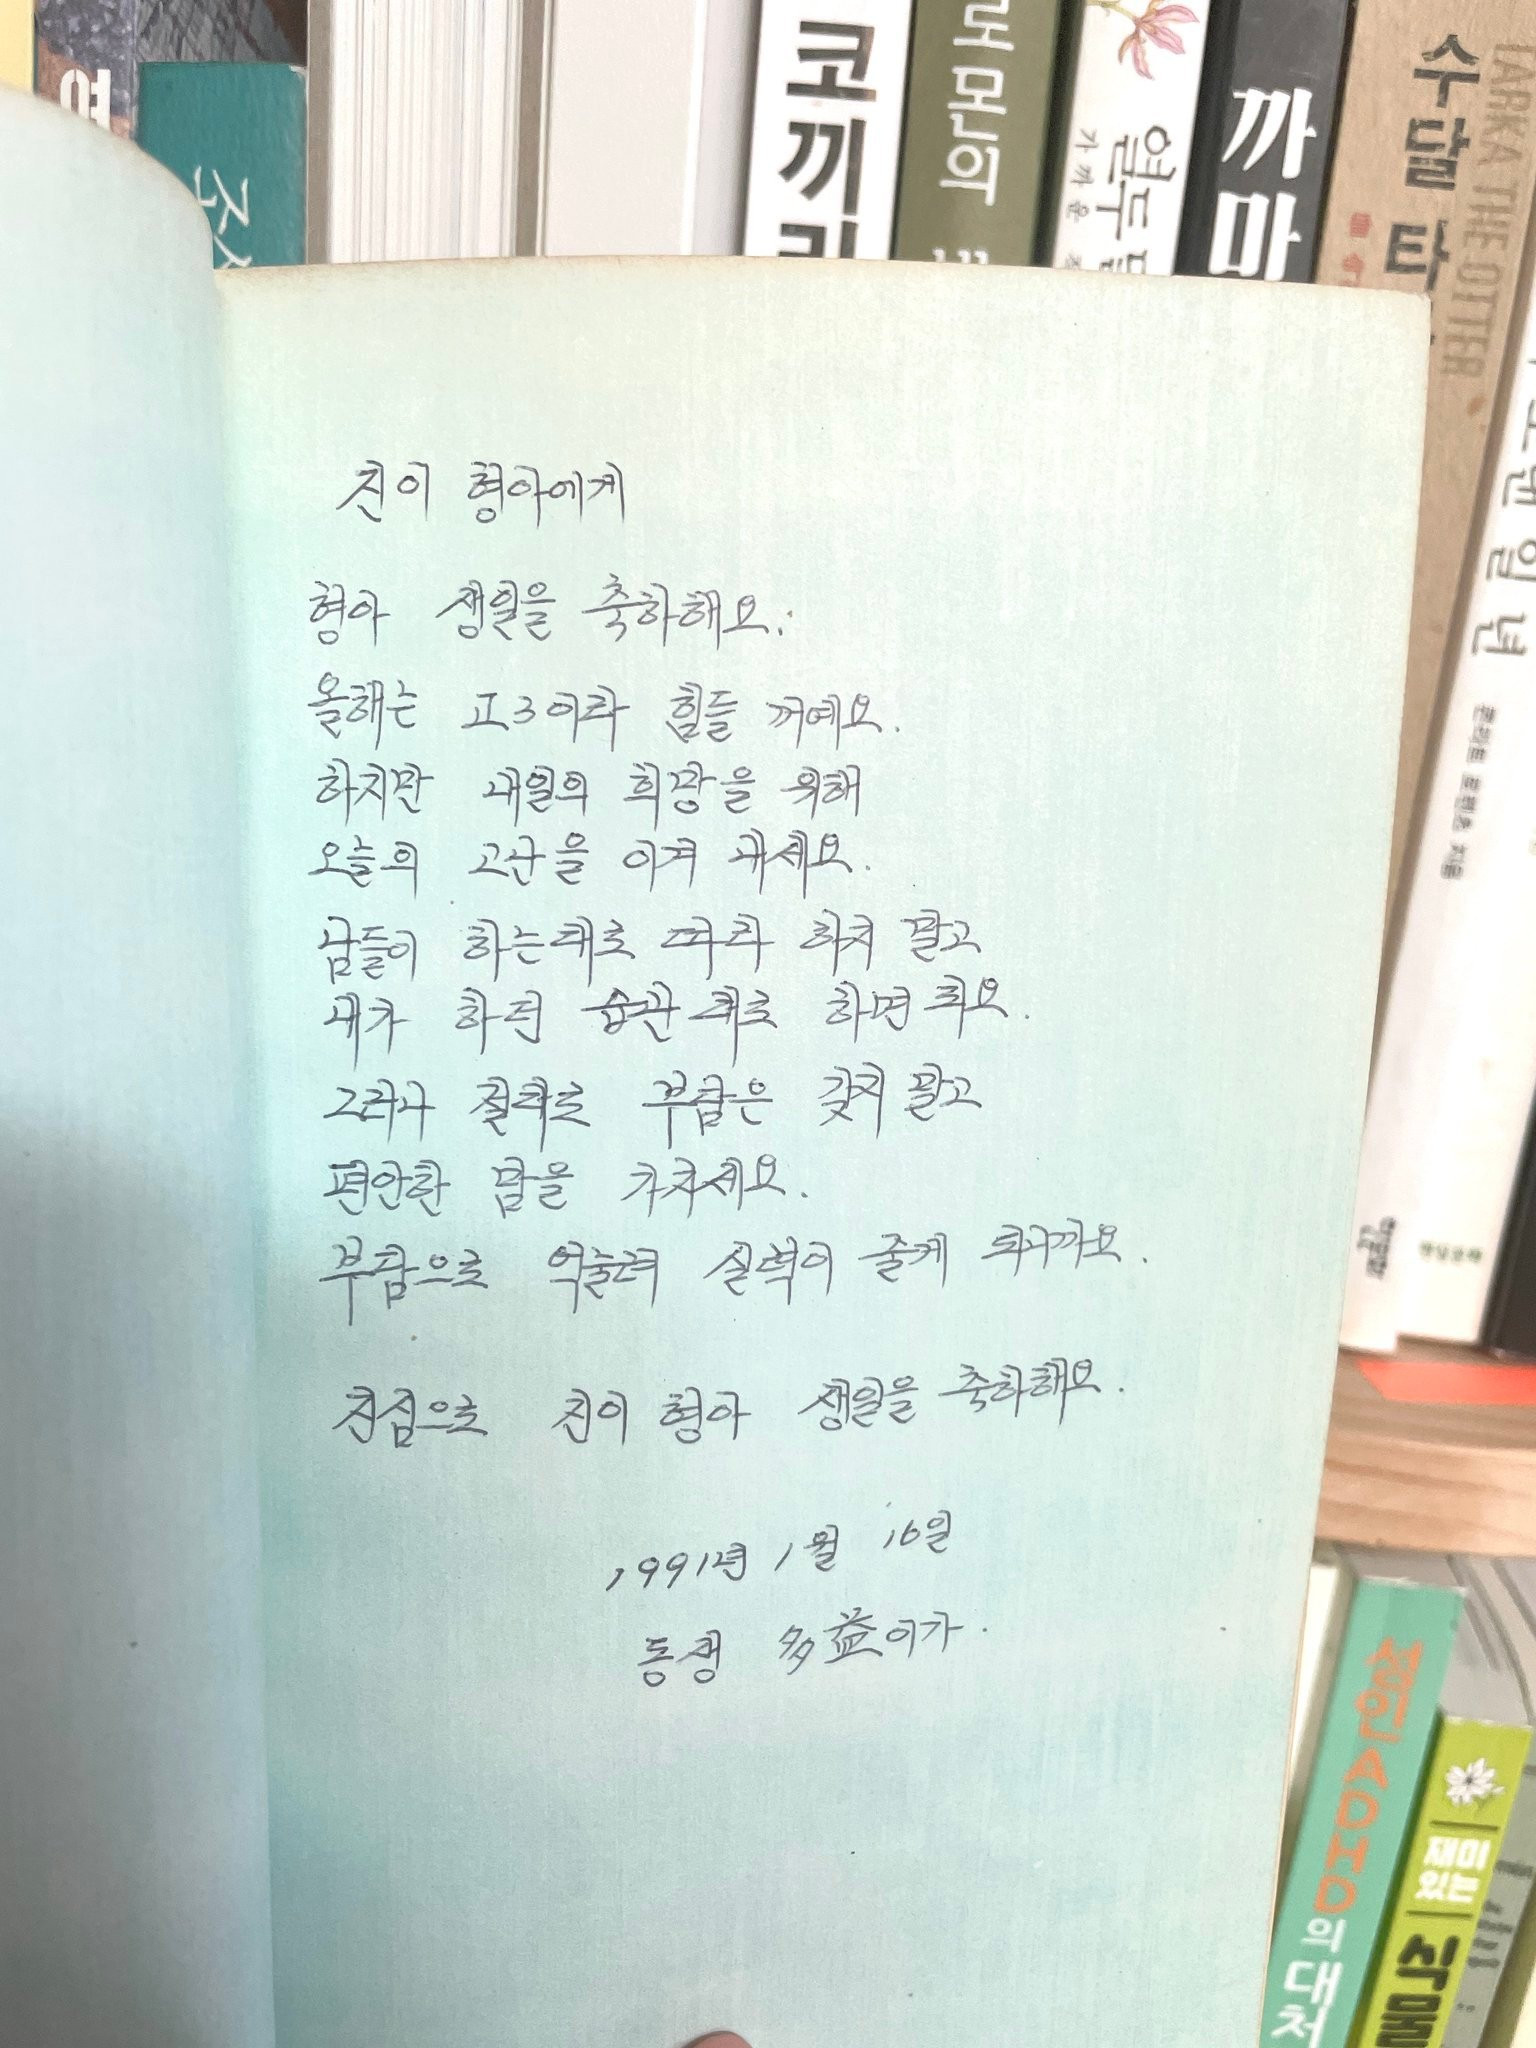 코끼리
로몬의
열두 달
가까운
까마
수달 타카
TARKA THE OTTER
일 년
콘라트 로렌츠 지음
진이 형아에게
형아 생일을 축하해요.
올해는 고3이라 힘들 꺼예요.
하지만 내일의 희망을 위해
오늘의 고난을 이겨 내세요.
남들이 하는대로 따라 하지 말고
내가 하던 습관대로 하면 되요.
그러나 절대로 부담은 갖지 말고
편안한 맘을 가지세요.
부담으로 억눌려 실력이 줄게 되니까요.
진심으로 진이 형아 생일을 축하해요.
1991년 1월 16일
동생 多益이가.
성인 ADHD의 대처
재미있는 식물